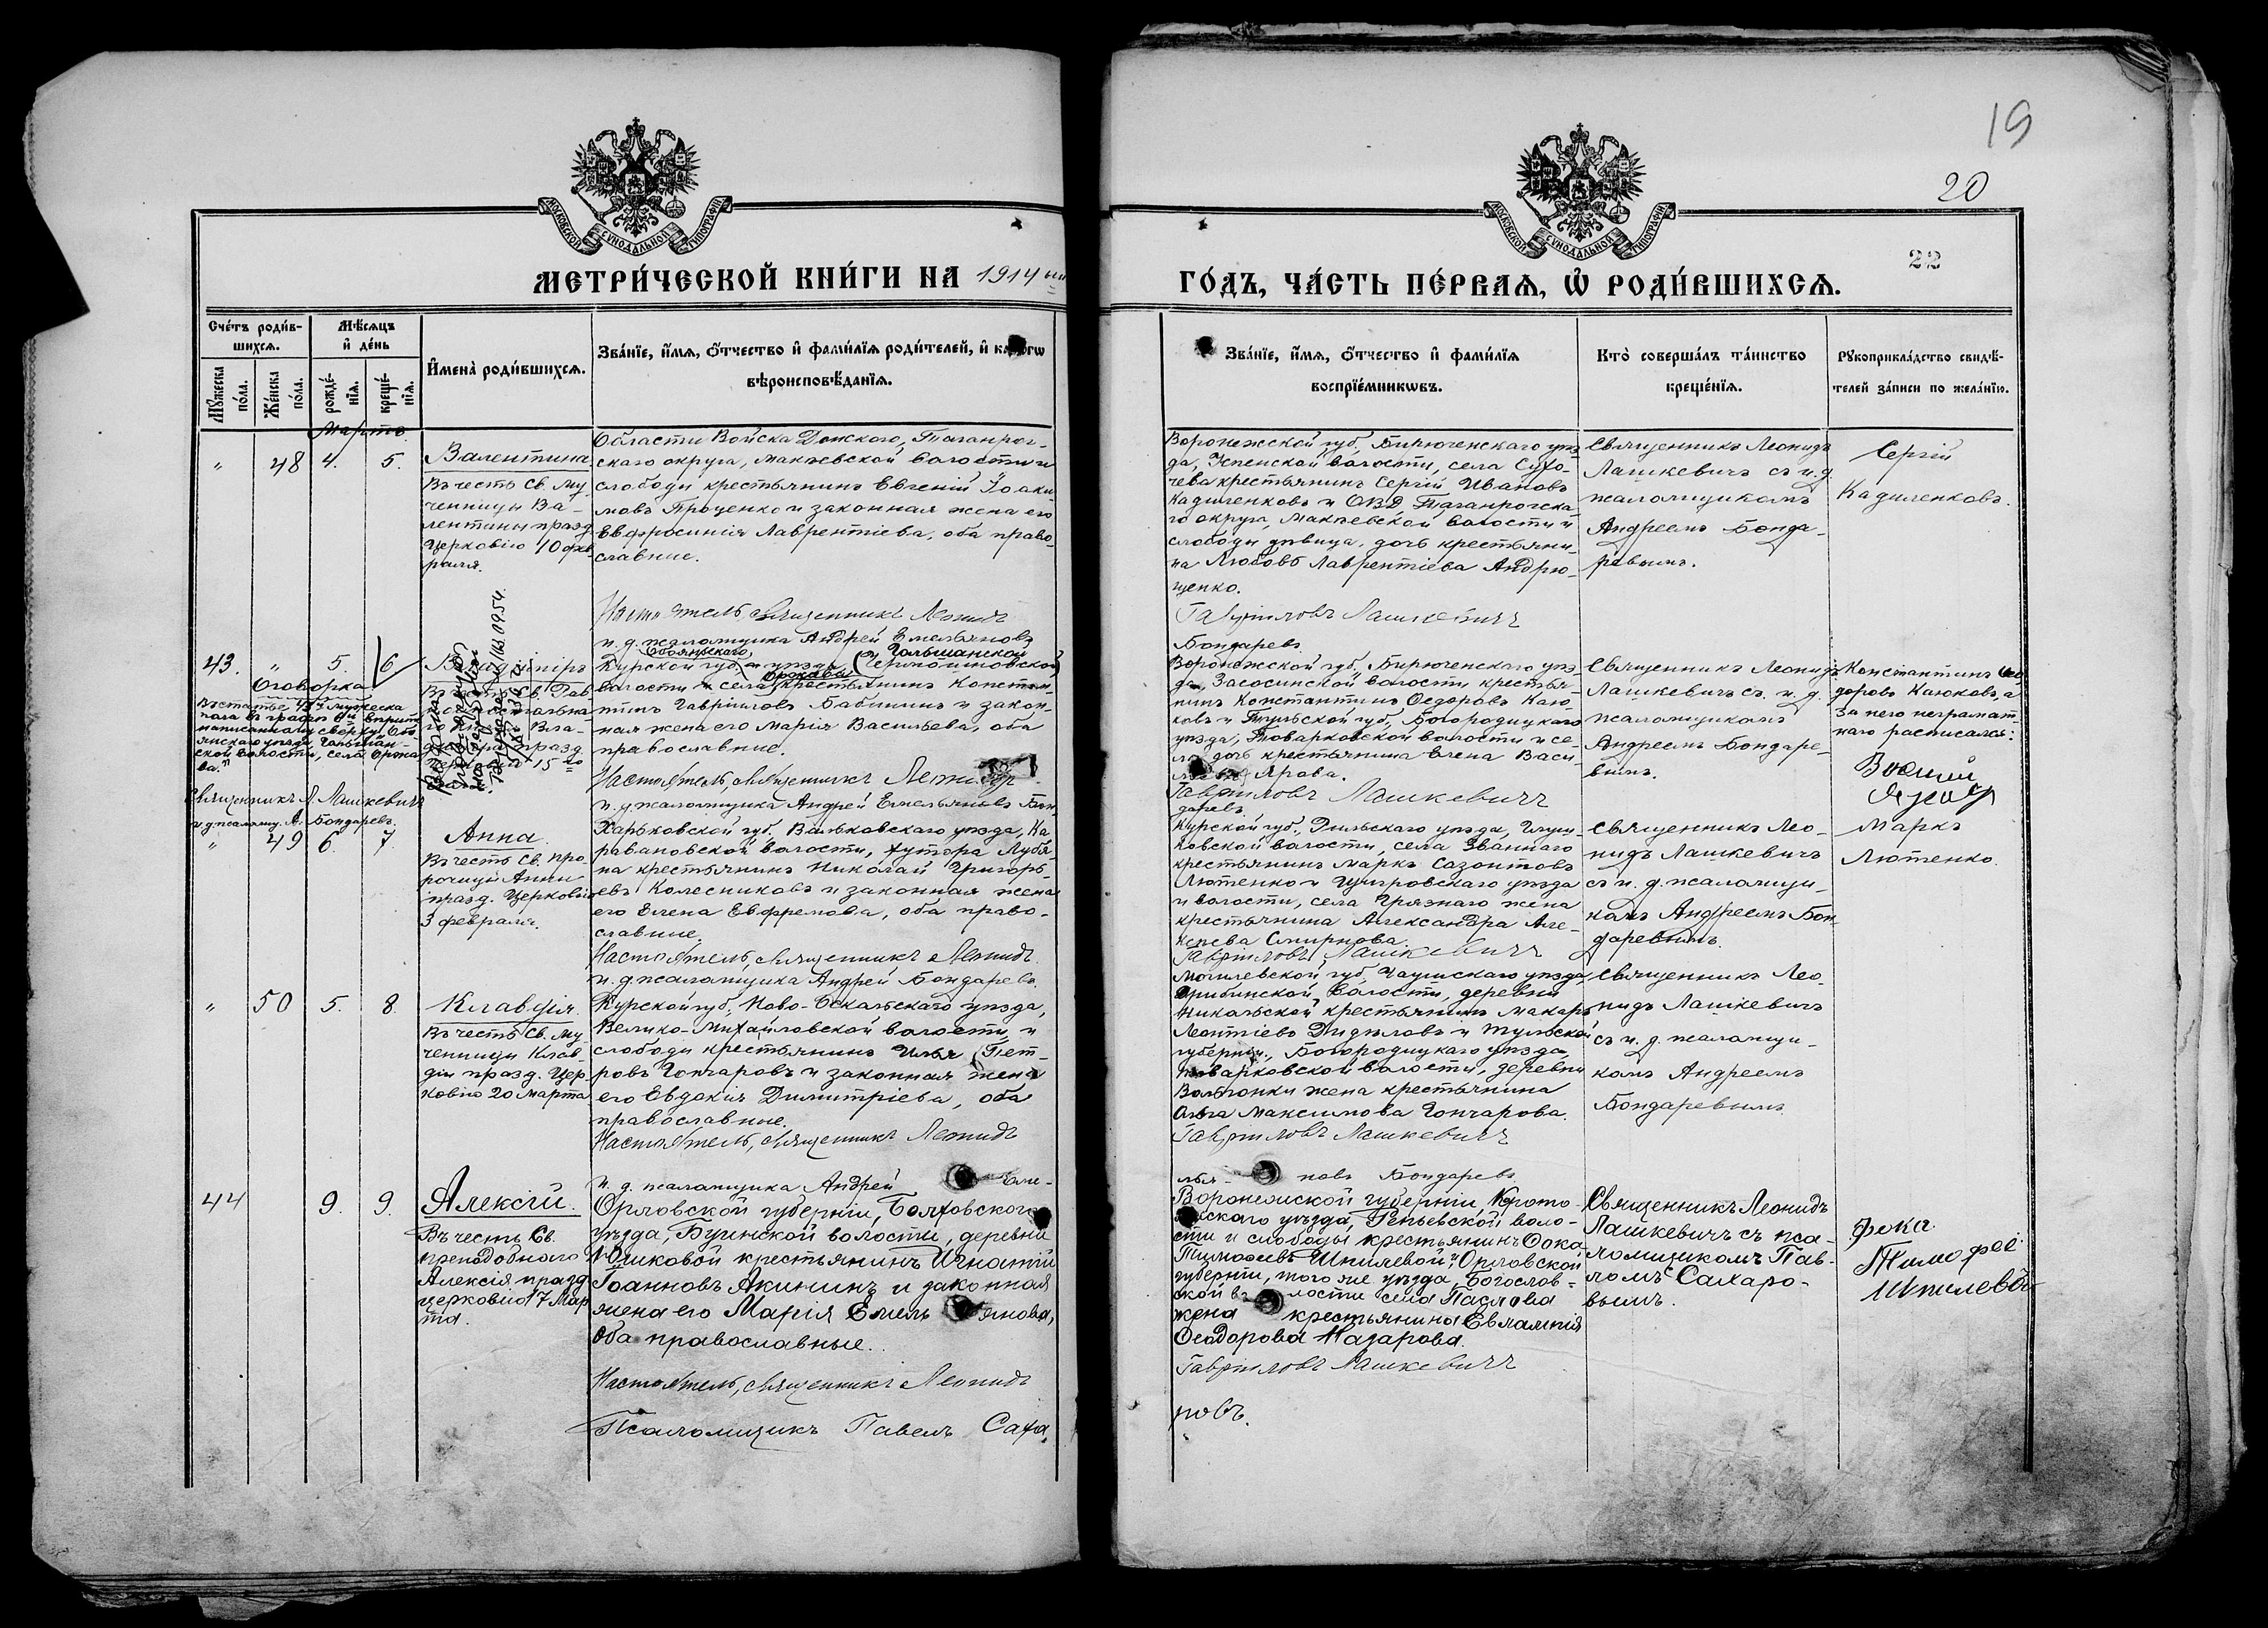 19
20
22
МОСКОВСКОЙ СУНОДАЛЬНОЙ ТИПОГРАФІИ
МОСКОВСКОЙ СУНОДАЛЬНОЙ ТИПОГРАФІИ
МЕТРИ́ЧЕСКОЙ КНИ́ГИ НА 1914 ый
ГО́ДЪ, ЧА́СТЬ ПЕ́РВАѦ, Ѽ РОДИ́ВШИХСѦ.
Сче́тъ роди́в-
шихсѧ.
Мѣ́сѧцъ
и҆ де́нь
Мꙋ́жеска
по́ла.
Же́нска
по́ла.
рожде́-
нїѧ.
креще́-
нїѧ.
И҆мена̀ роди́вшихсѧ.
Зва́нїе, и҆́мѧ, ѻ҆́тчество и҆ фами́лїѧ роди́телей, и҆
вѣроисповѣ́данїѧ.
Зва́нїе, и҆́мѧ, ѻ҆́тчество и҆ фами́лїѧ
воспрїе́мникѡвъ.
Кто̀ соверша́лъ та́инство
креще́нїѧ.
Рꙋкоприкла́дство свидѣ́-
телей за́писи по жела́нїю.
Мартъ
" 48 4. 5.
Валентина
Въ честь Св. му-
ченицы Ва-
лентины празд.
Церковію 10 фев-
раля.
Области Войска Донского, Таганрог-
скаго округа, Макѣевской волости и
слободы крестьянинъ Евгеній Іоаки-
мовъ Проценко и законная жена его
Евфросинія Лаврентіева, оба право-
славные.
Настоятель, священникъ Леонидъ
и. д. псаломщика Андрей Емельяновъ
Воронежской губ., Бирюченскаго уѣз-
да, Успенской волости, села Сухо-
чева крестьянинъ Сергій Ивановъ
Кадиленковъ и О.В.Д. Таганрогска-
го округа, Макѣевской волости и
слободы дѣвица, дочь крестьяни-
на Любовь Лаврентіева Андрю-
щенко.
Гавриловъ Лашкевичъ
Бондаревъ
Священникъ Леонидъ
Лашкевичъ съ и. д.
псаломщикомъ
Андреемъ Бонда-
ревымъ.
Сергій
Кадиленковъ.
43. " 5. 6
Оговорка
Въ статьѣ 43й мужеска
пола въ графѣ
написанному сверху: Обо-
янскаго уѣзда, Гольшан-
ской волости, села
Священникъ Л. Лашкевичъ
и. д. псаломщ. А. Бондаревъ.
Владиміръ
Въ честь Св. Рав-
ноапостольна-
го Князя Вла-
диміра празд.
15 го
1954.
Обоянскаго Гольшанской
Курской губ. уѣзда
волости и села крестьянинъ Констан-
тинъ Гавриловъ Бабининъ и закон-
ная жена его Марія Васильева, оба
православные.
Настоятель, священникъ Леонидъ
и. д. псаломщика Андрей Емельяновъ Бон-
Воронежской губ., Бирюченскаго уѣз-
да, Засосинской волости крестья-
нинъ Константинъ Ѳедоровъ Каю-
ковъ и Тульской губ., Богородицкаго
уѣзда, Товарковской волости и се-
ла дочь крестьянина Елена Васи-
Ярова.
Гавриловъ Лашкевичъ
даревъ
Священникъ Леонидъ
Лашкевичъ съ и. д.
псаломщикомъ
Андреемъ Бондаре-
вымъ.
Константинъ Ѳео-
доровъ Каюковъ, а
за него неграмот-
наго расписался:
" 49 6. 7.
Анна
Въ честь Св. про-
рочицы Анны
празд. Церковію
3 февраля.
Харьковской губ. Валковскаго уѣзда, Ка-
равановской волости, хутора Лубя-
на крестьянинъ Николай Григорь-
евъ Колесниковъ и законная жена
его Елена Евфремова, оба право-
славные.
Настоятель, священникъ Леонидъ
и. д. псаломщика Андрей Бондаревъ
Курской губ., Рыльскаго уѣзда, Глуш-
ковской волости, села Званнаго
крестьянинъ Маркъ Сазонтовъ
Лютенко и Щигровскаго уѣзда
и волости, села Грязнаго жена
крестьянина Александра Але-
ксѣева Смирнова.
Гавриловъ Лашкевичъ
Священникъ Лео-
нидъ Лашкевичъ
съ и. д. псаломщи-
комъ Андреемъ Бон-
даревымъ.
Маркъ
Лютенко.
" 50 5. 8.
Клавдія.
Въ честь Св. му-
ченицы Клав-
діи празд. Цер-
ковію 20 марта
Курской губ., Ново-Оскольскаго уѣзда,
Велико-Михайловской волости и
слободы крестьянинъ Илья Пет-
ровъ Гончаровъ и законная жена
его Евдокія Димитріева, оба
православные.
Настоятель, священникъ Леонидъ
и. д. псаломщика Андрей Еме-
Могилевской губ., Чаусскаго уѣзда,
волости, деревни
Никольской крестьянинъ Макаръ
Леонтіевъ и Тульской
губерніи, Богородицкаго уѣзда,
Товарковской волости, деревни
жена крестьянина
Ольга Максимова Гончарова.
Гавриловъ Лашкевичъ
нья- новъ Бондаревъ
Священникъ Лео-
нидъ Лашкевичъ
съ и. д. псаломщи-
комъ Андреемъ
Бондаревымъ
44 9. 9.
Алексій.
Въ честь Св.
преподобнаго
Алексія празд.
церковію 17 Мар-
та.
Орловской губерніи, Болховскаго
уѣзда, Буинской волости, деревни
Юшковой крестьянинъ Игнатій
Іоанновъ Акининъ и законная
жена его Марія Емельянова,
оба православные.
Настоятель, священникъ Леонидъ
Псаломщикъ Павелъ Саха-
Воронежской губерніи, Корото-
якскаго уѣзда, Репьевской воло-
сти и слободы крестьянинъ Ѳока
Тимоѳеевъ Шпилевой; Орловской
губерніи, того же уѣзда, Богослов-
ской волости села Паслова
жена крестьянина Евлампія
Ѳеодорова Назарова.
Гавриловъ Лашкевичъ
ровъ.
Священникъ Леонидъ
Лашкевичъ съ пса-
ломщикомъ Пав-
ломъ Сахаро-
вымъ.
Фока
Тимофеев
Шпилевой